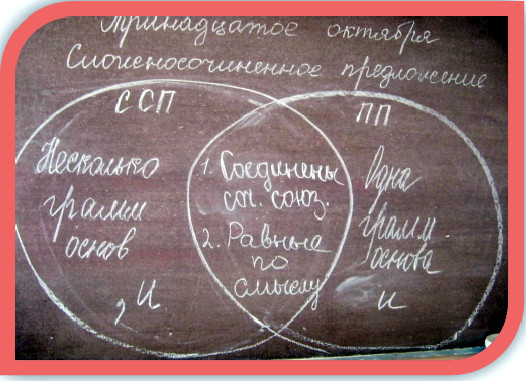 Тринадцатое октября
Сложносочиненное предложение
ССП
ПП
Несколько
грамм
основ
, и
1. Соединены
соч. союз.
2. Равны
по
смыслу
Одна
грамм.
основа
и